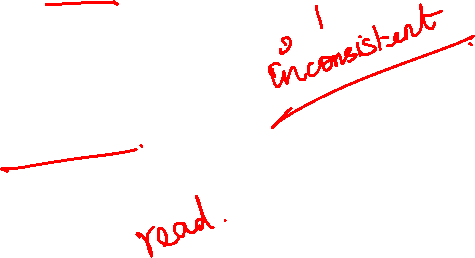 inconsistent
read.